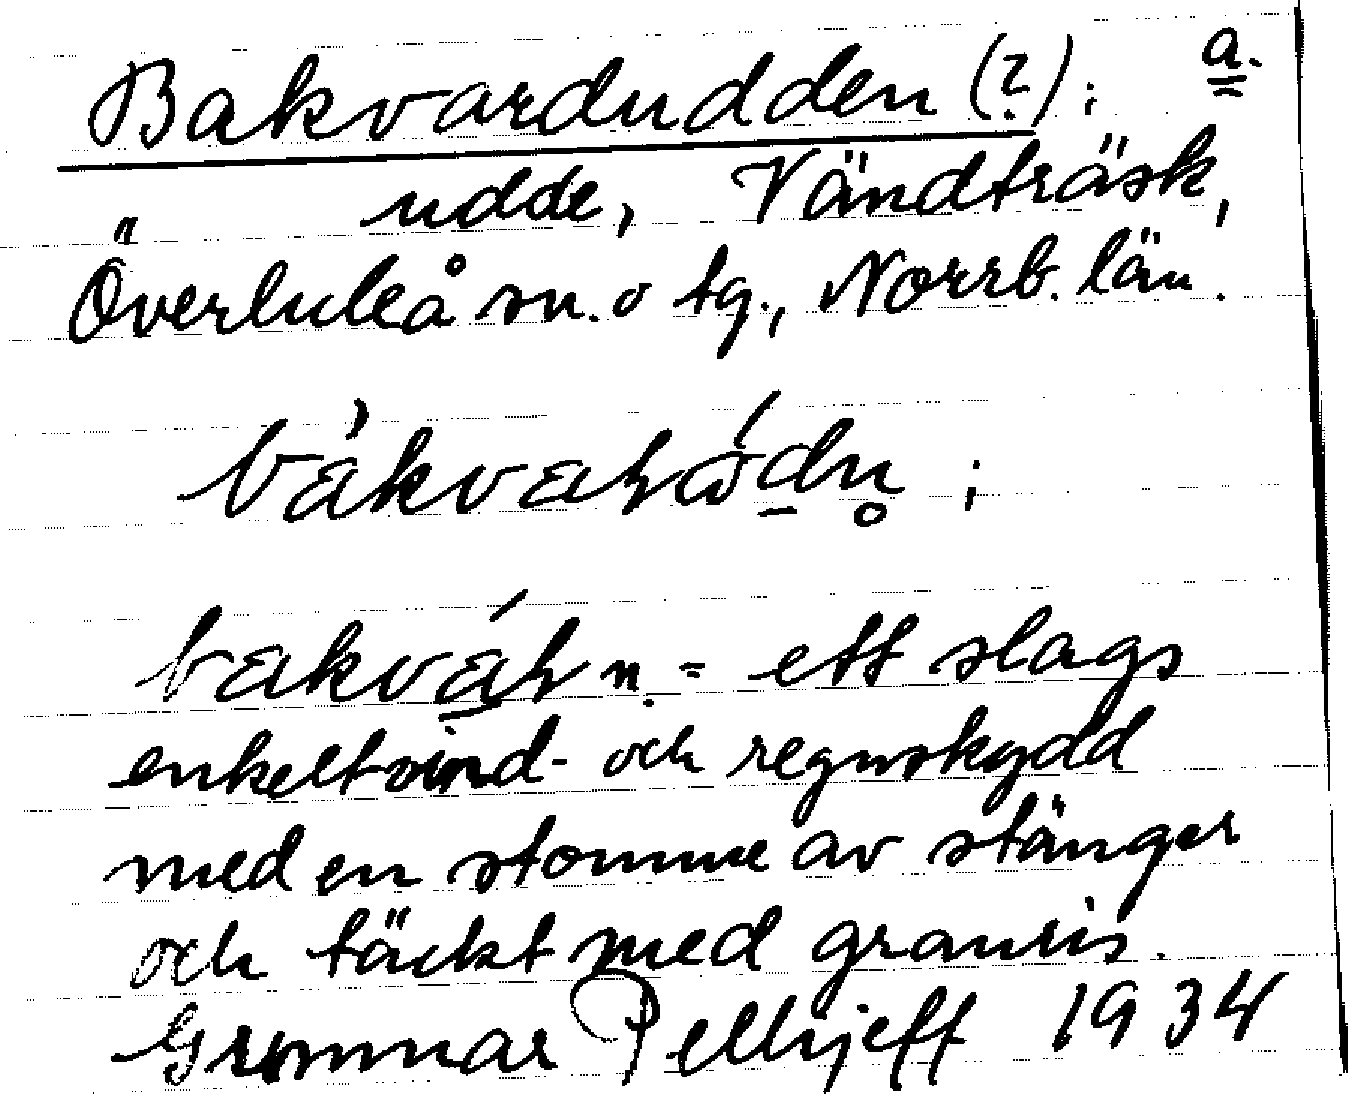 Bakvardudden (?); a.
udde, Vändträsk,
Överluleå sn. o tg., Norrb. län.
bakvạr n. = ett slags
enkelt vind- och regnskydd
med en stomme av stänger
och täckt med granris.
Gunnar Pellijeff 1934